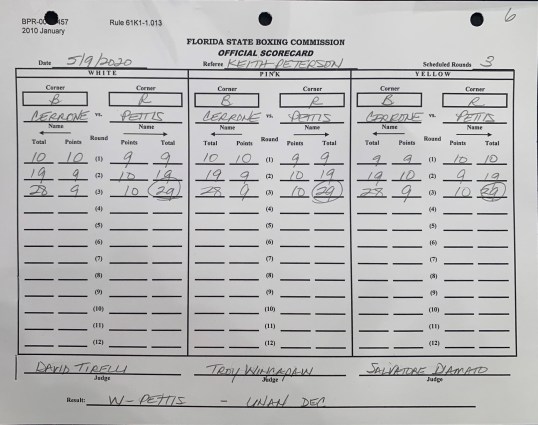 BPR-0 457 Rule 61K1-1.013 6
2010 January
FLORIDA STATE BOXING COMMISSION
OFFICIAL SCORECARD
Date 5/9/2020 Referee KEITH PETERSON Scheduled Rounds 3
WHITE PINK YELLOW
Corner Corner Corner Corner Corner Corner
B R B R B R
CERRONE vs. PETTIS CERRONE vs. PETTIS CERRONE vs. PETTIS
Name Name Name Name Name Name
Total Points Round Points Total Total Points Round Points Total Total Points Round Points Total
10 10 (1) 9 9 10 10 (1) 9 9 9 9 (1) 10 10
19 9 (2) 10 19 19 9 (2) 10 19 19 10 (2) 9 19
28 9 (3) 10 29 28 9 (3) 10 29 28 9 (3) 10 29
(4) (4) (4)
(5) (5) (5)
(6) (6) (6)
(7) (7) (7)
(8) (8) (8)
(9) (9) (9)
(10) (10) (10)
(11) (11) (11)
(12) (12) (12)
DAVID TIRELLI TROY WINCAPAW SALVATORE D'AMATO
Judge Judge Judge
Result: W- PETTIS - UNAN DEC.